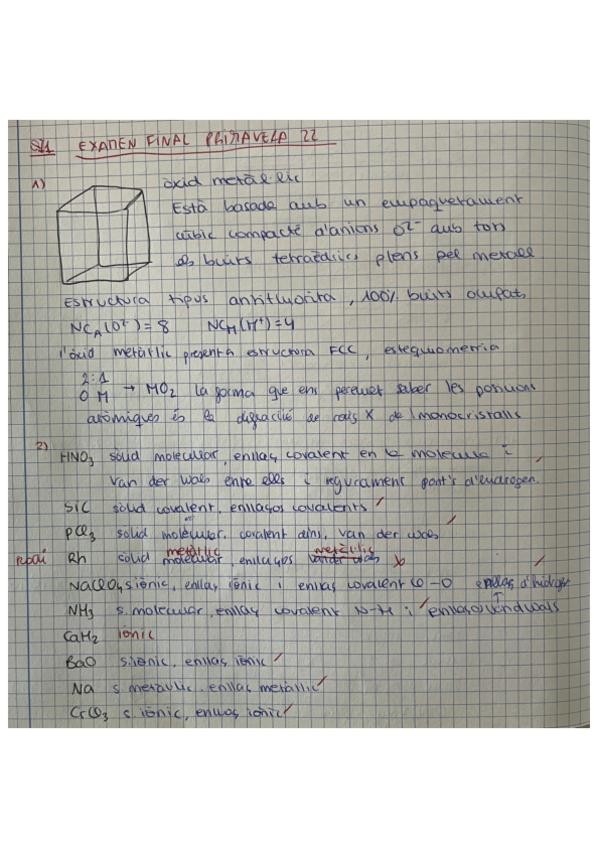 EXAMEN FINAL PRIMAVERA 22
1) òxid metàl·lic
Està basada amb un empaquetament
cúbic compacte d'anions O²⁻ amb tots
els buits tetraèdrics plens pel metall
Estructura tipus antifluorita, 100% buits ocupats
NC_A(O²⁻) = 8 NC_M(M⁺) = 4
l'òxid metàl·lic presenta estructura FCC, estequiometria
2:1
O M → MO₂ la forma que ens permet saber les posicions
atòmiques és la difracció de raigs X de monocristalls
2)
HNO₃ sòlid molecular, enllaç covalent en la molècula i
van der wals entre elles i segurament pont's d'hidrogen.
SiC sòlid covalent, enllaços covalents
PCl₃ sòlid molecular, covalent dins, van der wals
Rh sòlid molecular metàl·lic, enllaços van der wals metàl·lic
NaClO₄ s iònic, enllaç iònic i enllaç covalent Cl-O enllaç d'hidrogen
NH₃ s. molecular, enllaç covalent N-H i enllaços vandwals
CaH₂ iònic
BaO s. iònic, enllaç iònic
Na s metàl·lic, enllaç metàl·lic
CrCl₃ s. iònic, enllaç iònic